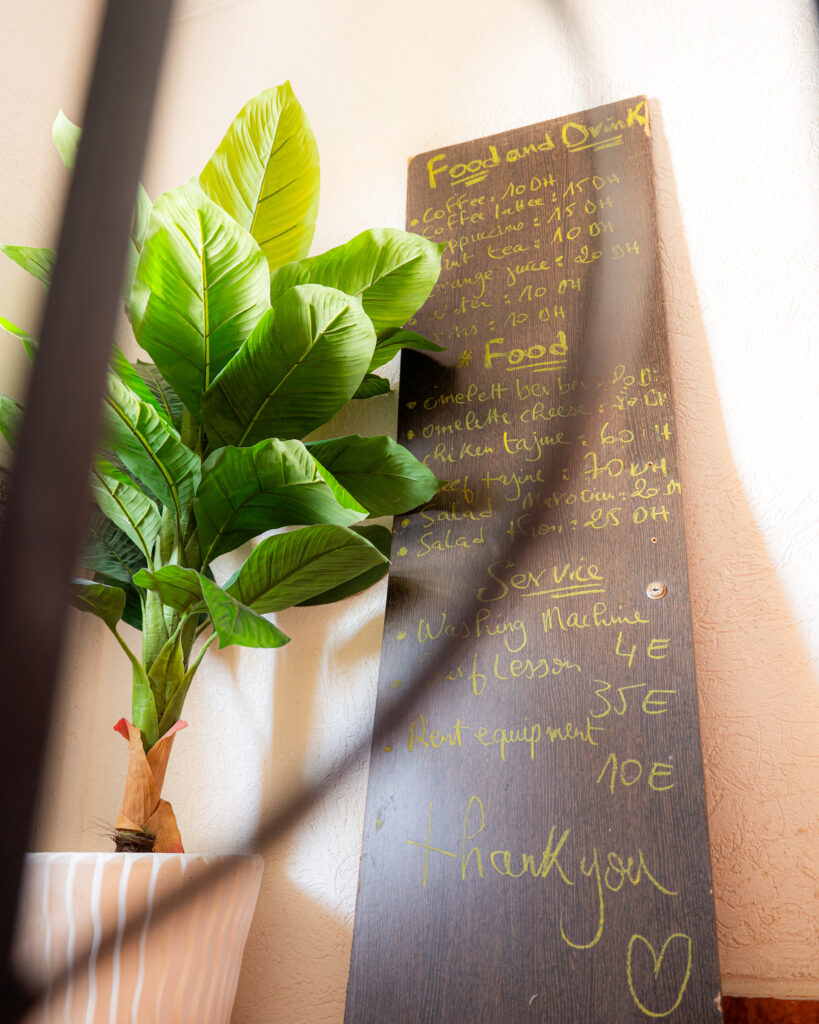 Food and Drink
• Coffee: 10 DH
Coffee lattee: 15 DH
: 15 DH
tea : 10 DH
juice : 20 DH
: 10 DH
: 10 DH
* Food
• omelett ber
• omelette cheese :
chiken tajine : 60
tajine : 70 DH
• Salad : 20 D
• Salad : 25 DH
Service
• Washing Machine
4E
Lesson
35E
• Rent equipment
10E
thank you
♡